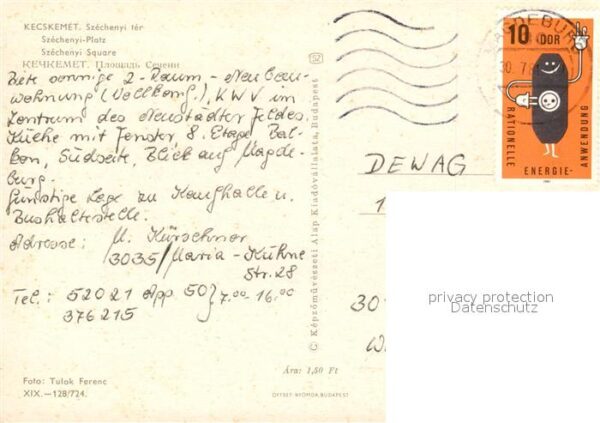 KECSKEMÉT. Széchenyi tér
Széchenyi-Platz
Széchenyi Square
КЕЧКЕМЕТ. Площадь Сечени
Biete sonnige 2-Raum-Neubau-
wohnung (Vollkomf.), KWV im
Zentrum des Neustädter Feldes.
Küche mit Fenster 8. Etage Bal-
kon, Südseite, Blick auf Magde-
burg.
Günstige Lage zu Kaufhalle u.
Bushaltestelle.
Adresse: U. Kürschner
3035/Maria-Kühne
Str. 28
Tel.: 52021 App 50 } 7.00-16.00
376215
Foto: Tulok Ferenc
XIX.—128/724.
Ára: 1,50 Ft
OFFSET-NYOMDA, BUDAPEST
© Képzőművészeti Alap Kiadóvállalata, Budapest
DEWAG
1
30
W
MAGDEBURG
10 DDR
RATIONELLE ENERGIE-ANWENDUNG
privacy protection
Datenschutz